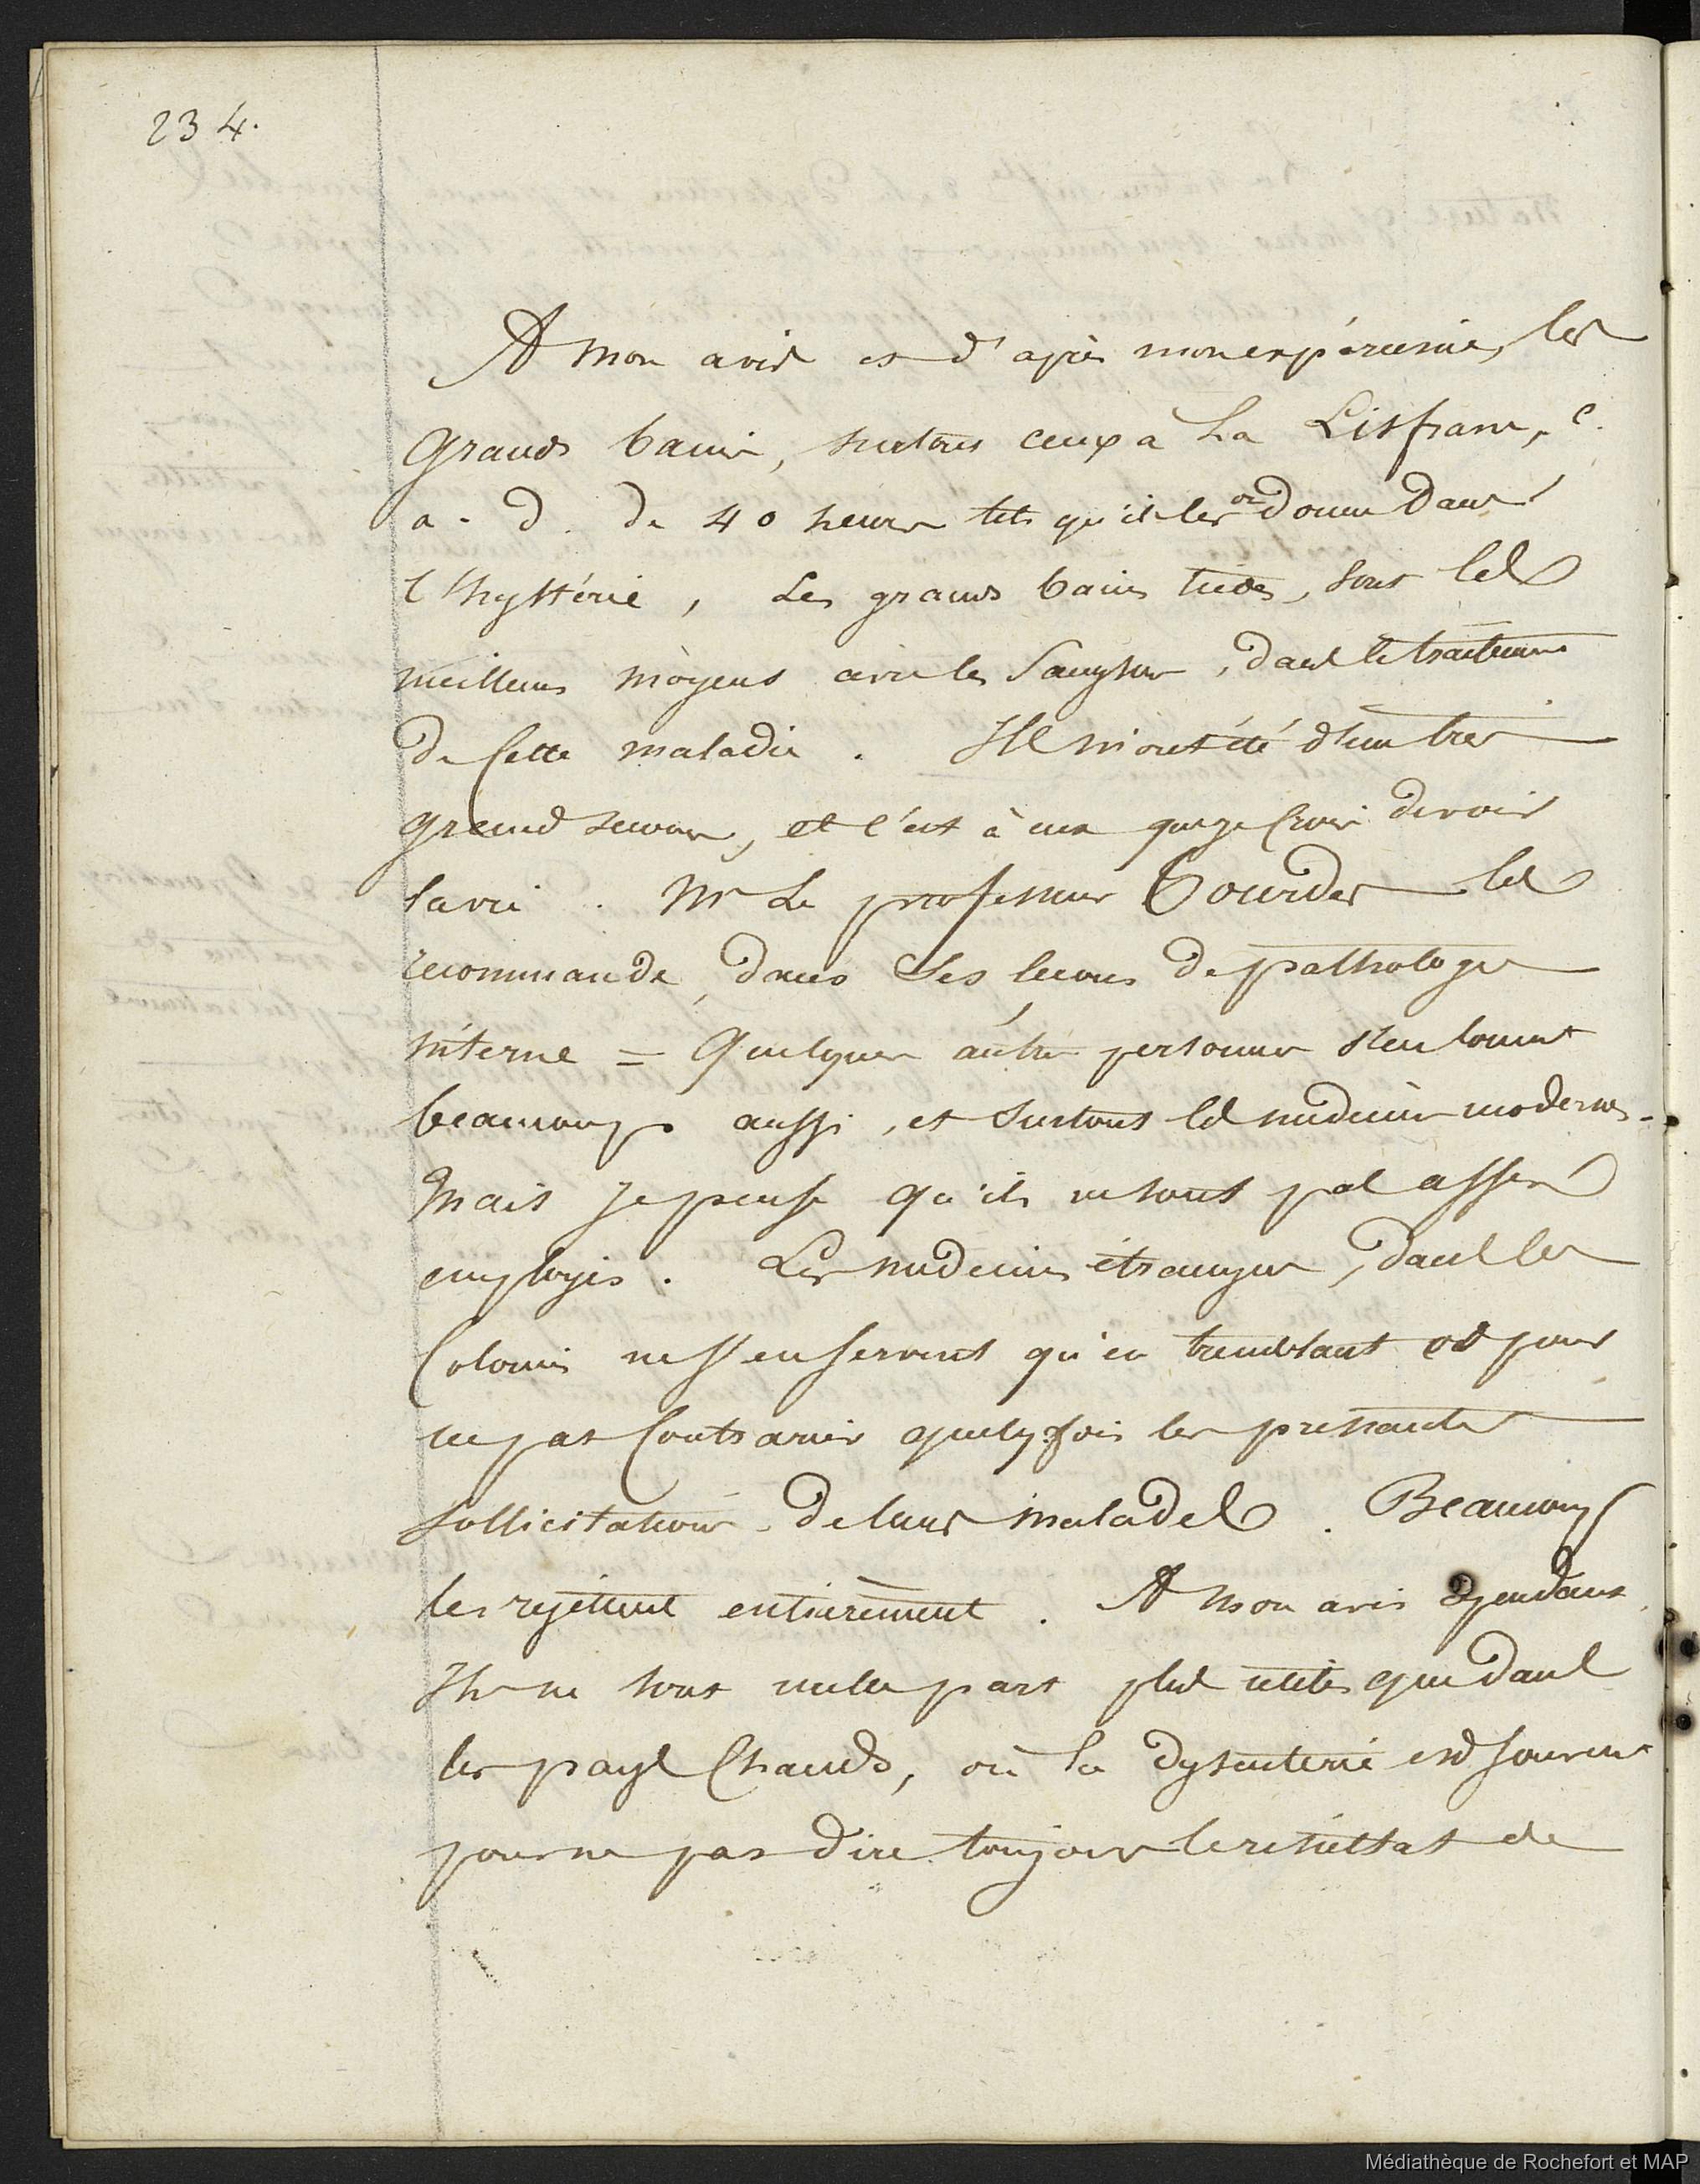 234.
A mon avis et d'après mon expérience, les
grands bains, surtout ceux a la Lisfranc, c.
a. d. de 40 heures tels qu'il les on donne dans
l'hystérie, les grands bains tiedes, sont les
meilleurs moyens avec les Sangsues, dans le traitement
de Cette maladie. Ils m'ont été d'un tres
grand secours, et c'est à eux que je Crois devoir
la vie. Mr Le professeur les
recommande, dans ses lecons de pathologie
interne = Quelques autres personnes s'en louent
beaucoup aussi, et surtout les médecins modernes -
Mais je pense qu'ils ne sont pas assez
employés. Les médecins étrangers, dans les
Colonies ne s'en servent qu'en tremblant et pour
ne pas Contrarier quelqfois les pressantes
sollicitations de leurs malades. Beaucoup
les rejettent entierement. A mon avis cependant
Ils ne sont nulle part plus utiles que dans
les pays Chauds, où la dysenterie est souvent
pour ne pas dire toujours le résultat de
Médiathèque de Rochefort et MAP